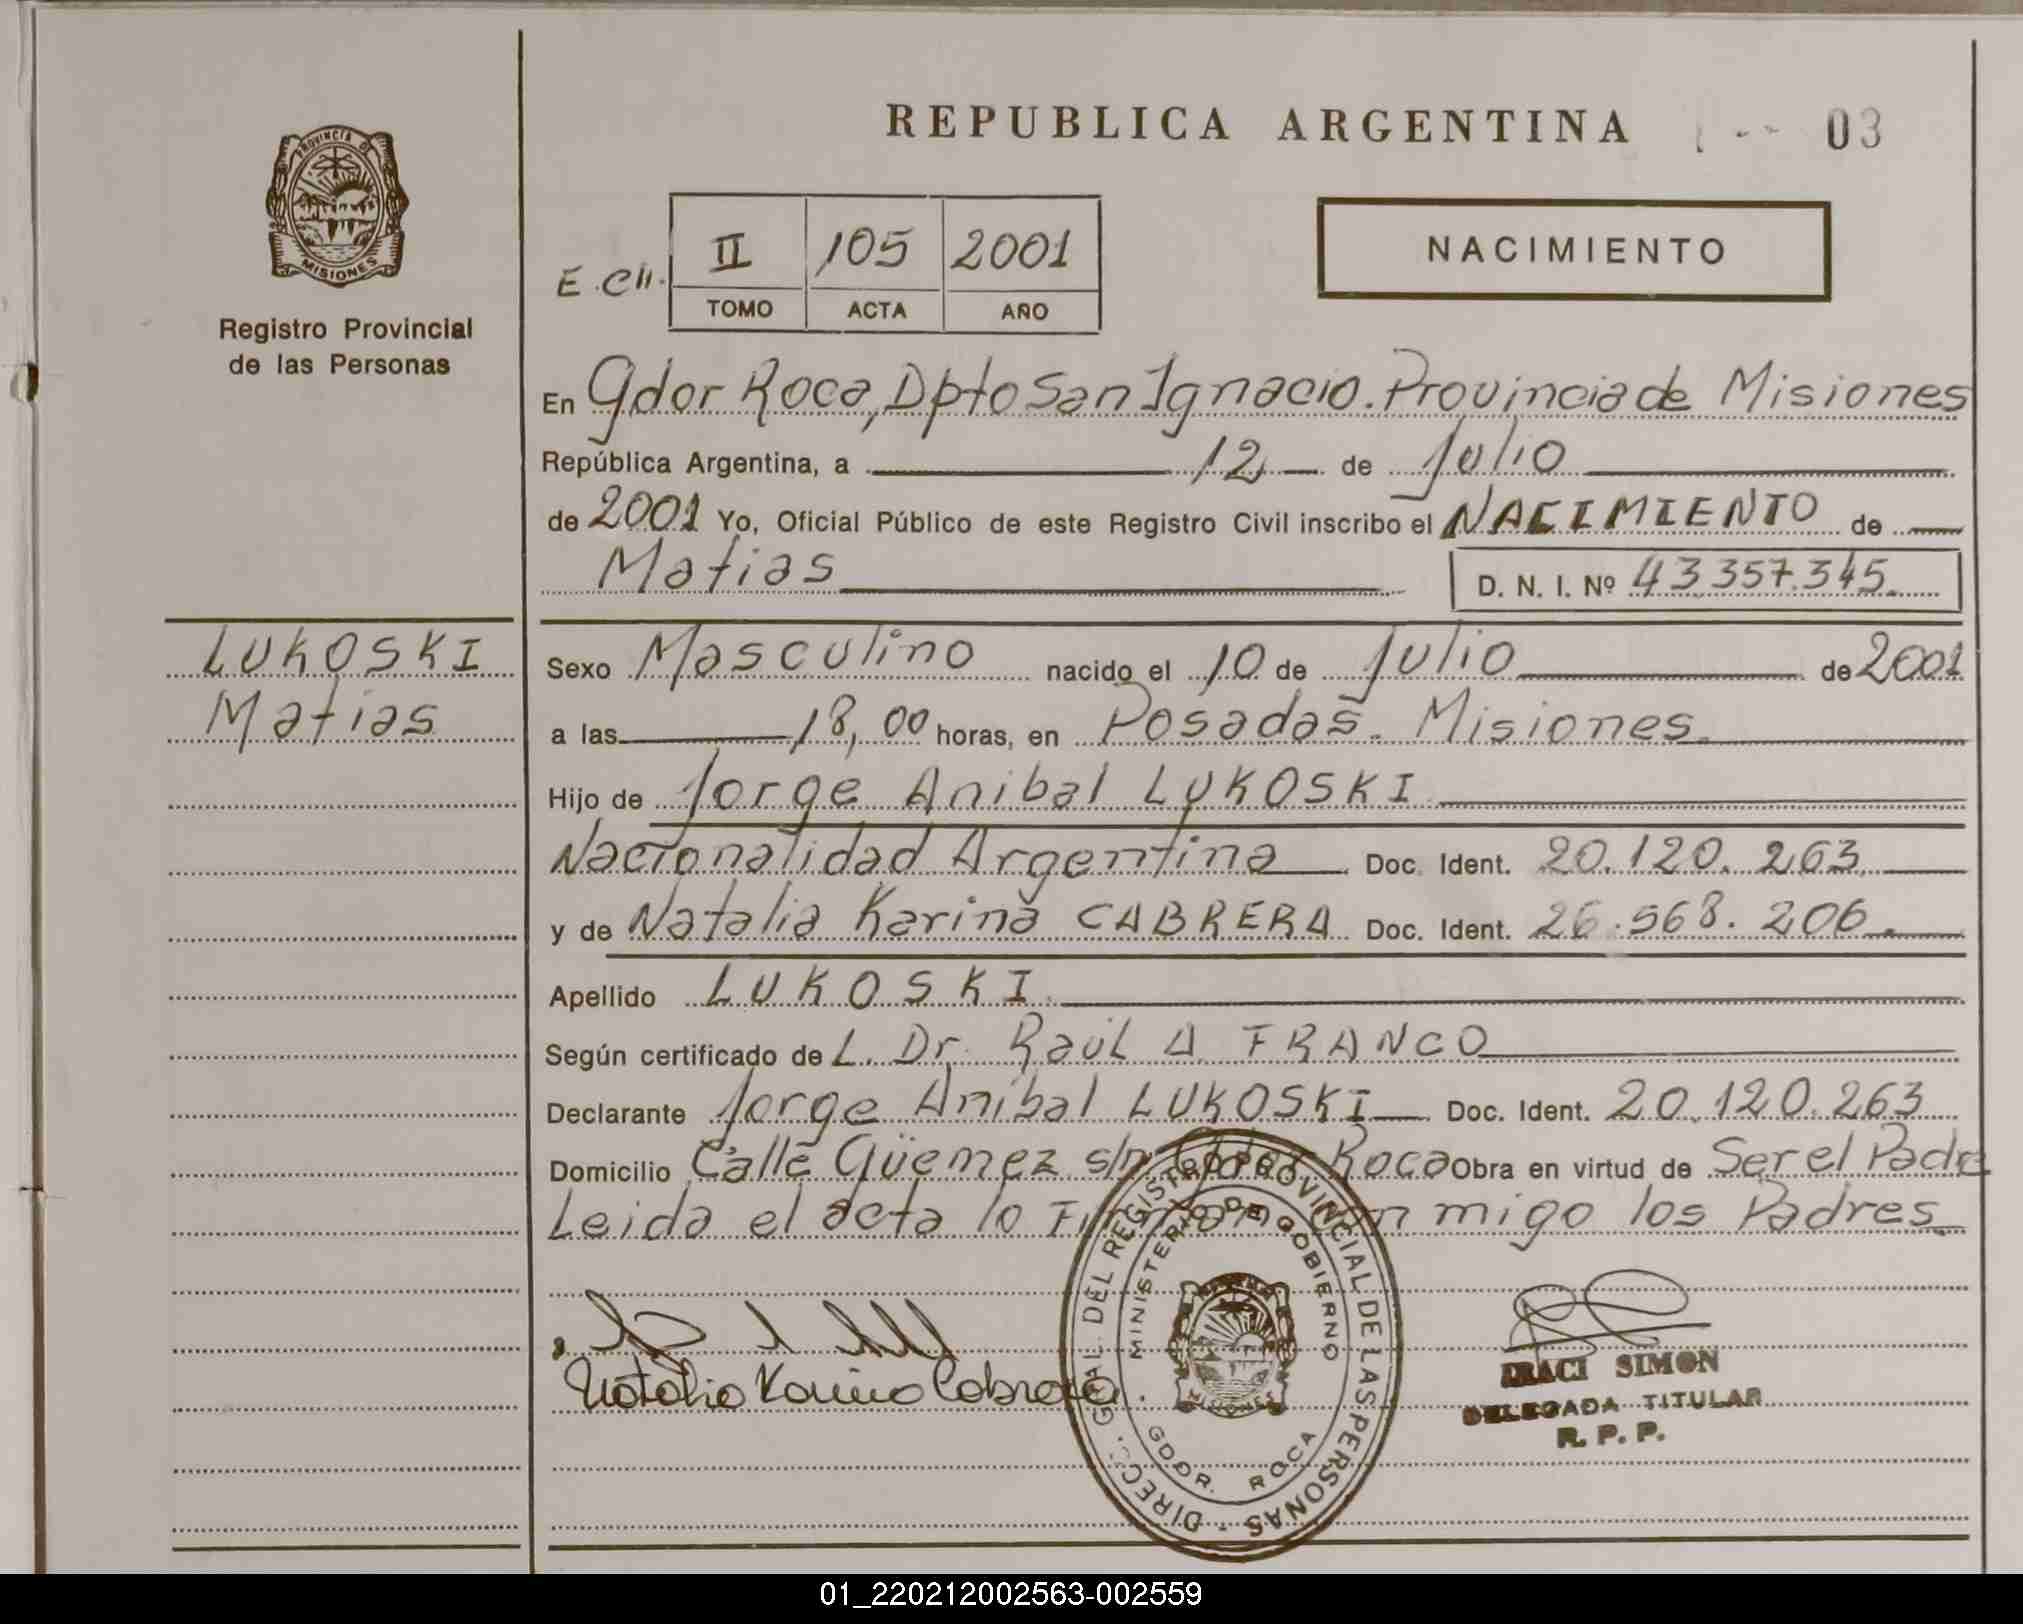 REPUBLICA ARGENTINA 03
PROVINCIA DE
MISIONES
Registro Provincial
de las Personas
NACIMIENTO
E.CH. II 105 2001
TOMO ACTA AÑO
En Gdor Roca, Dpto San Ignacio. Provincia de Misiones
República Argentina, a 12 de Julio
de 2001 Yo, Oficial Público de este Registro Civil inscribo el NACIMIENTO de
Matias D. N. I. Nº 43.357.345.
LUKOSKI
Matias
Sexo Masculino nacido el 10 de Julio de 2001
a las 18,00 horas, en Posadas. Misiones.
Hijo de Jorge Anibal LUKOSKI
Nacionalidad Argentina Doc. Ident. 20.120.263
y de Natalia Karina CABRERA Doc. Ident. 26.568.206.
Apellido LUKOSKI
Según certificado de L. Dr. Raúl A. FRANCO
Declarante Jorge Anibal LUKOSKI Doc. Ident. 20.120.263
Domicilio Calle Güemez s/n Gdor Roca Obra en virtud de Ser el Padre
Leida el acta lo Firman conmigo los Padres
Natalia Karina Cabrera.
DIRECC. GRAL. DEL REGISTRO PROVINCIAL DE LAS PERSONAS
MINISTERIO DE GOBIERNO
MISIONES
GDOR. ROCA
IRACI SIMON
DELEGADA TITULAR
R. P. P.
01_220212002563-002559